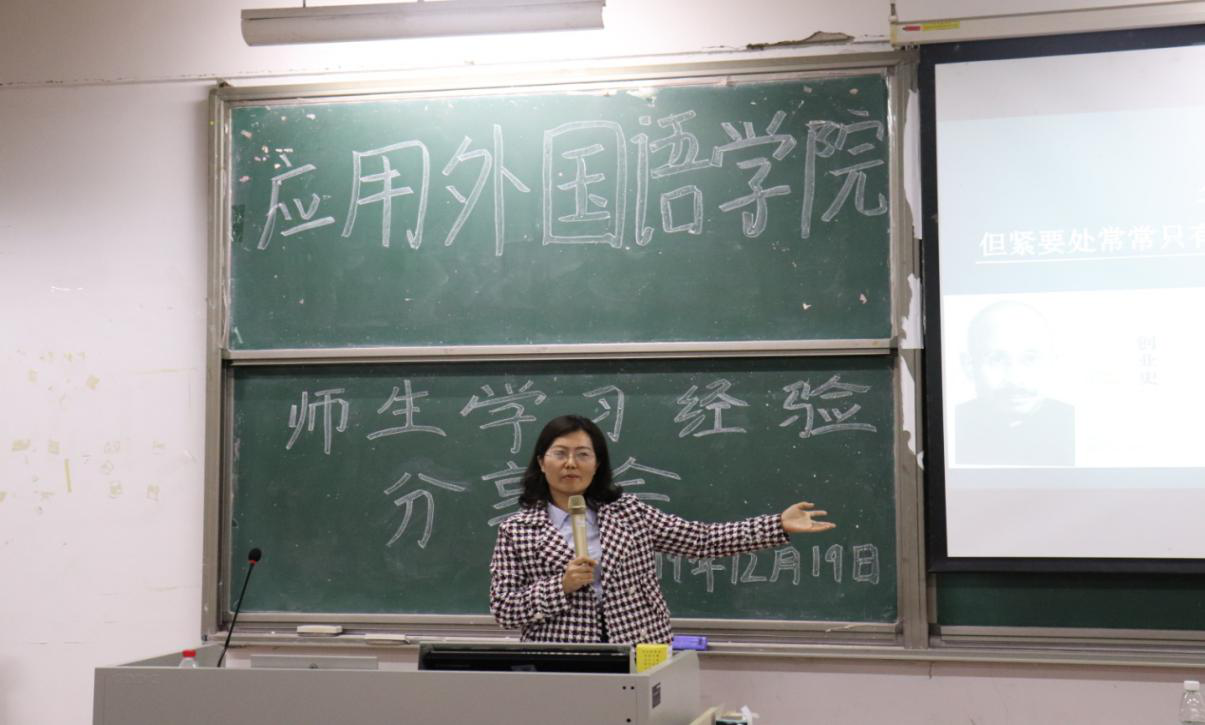 应用外国语学院
师生学习经验
分享会
19年12月19日
但紧要处常常只有
创业史